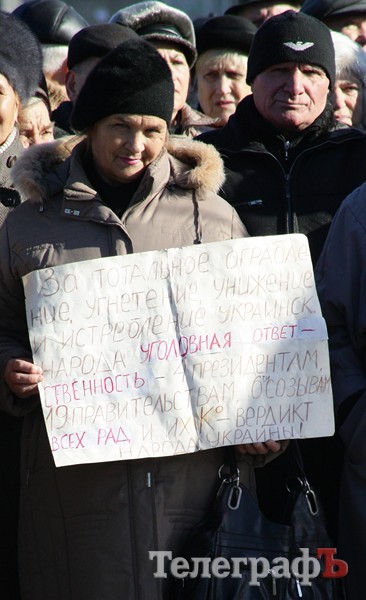 За тотальное ограбле-
ние, угнетение унижение
и истребление украинск.
народа уголовная ответ-
ственность – 4 президентам,
19 правительствам, 6 созывам
всех рад и их К° – вердикт
народа Украины!
ТелеграфЪ